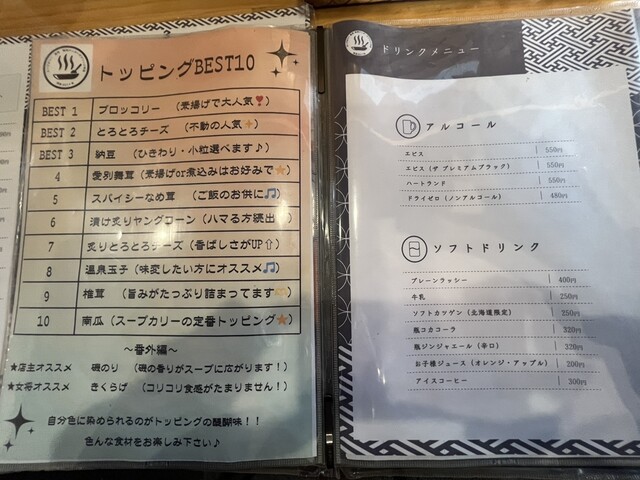 トッピングBEST10
BEST 1 ブロッコリー (素揚げで大人気❣)
BEST 2 とろとろチーズ (不動の人気✨)
BEST 3 納豆 (ひきわり・小粒選べます♪)
4 愛別舞茸 (素揚げor煮込みはお好みで⭐)
5 スパイシーなめ茸 (ご飯のお供に🎵)
6 漬け炙りヤングコーン (ハマる方続出
7 炙りとろとろチーズ (香ばしさがUP⇧)
8 温泉玉子 (味変したい方にオススメ🎵)
9 椎茸 (旨みがたっぷり詰まってます
10 南瓜 (スープカリーの定番トッピング⭐)
～番外編～
★店主オススメ 磯のり (磯の香りがスープに広がります!)
★女将オススメ きくらげ (コリコリ食感がたまりません!)
自分色に染められるのがトッピングの醍醐味!!
色んな食材をお楽しみ下さい♪
ドリンクメニュー
アルコール
エビス 550円
エビス (ザ プレミアムブラック) 550円
ハートランド 550円
ドライゼロ (ノンアルコール) 480円
ソフトドリンク
プレーンラッシー 400円
牛乳 250円
ソフトカツゲン (北海道限定) 250円
瓶コカコーラ 320円
瓶ジンジャエール (辛口) 320円
お子様ジュース (オレンジ・アップル) 200円
アイスコーヒー 300円